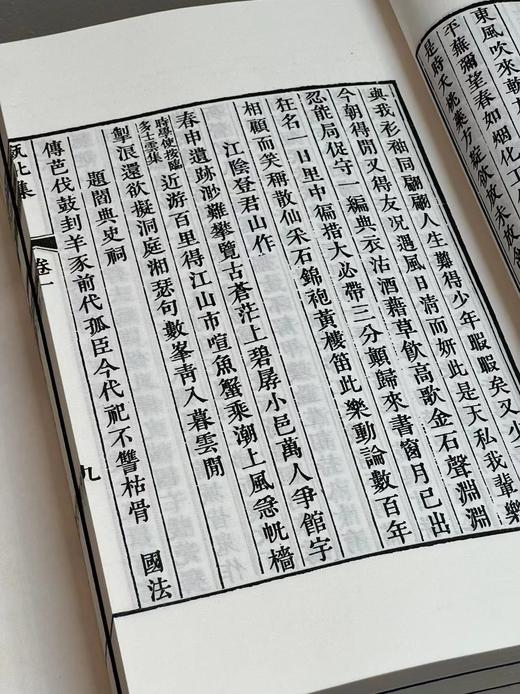 東風吹來歌
平蕪彌望春如烟化
是時夭桃蕊方綻欲放未放
與我衫袖同翩翩人生難得少年暇暇矣又少
今朝得閒又得友况遇風日清而妍此是天私我輩樂
忍能局促守一編典衣沽酒藉草飲高歌金石聲淵淵
狂名一日里中徧措大必帶三分顛歸來書窗月已出
相顧而笑稱散仙采石錦袍黃樓笛此樂動論數百年
江陰登君山作
春申遺跡渺難攀覽古蒼茫上碧孱小邑萬人爭館宇
時學使按臨
多士雲集
近游百里得江山市喧魚蟹乘潮上風急帆檣
掣浪還欲擬洞庭湘瑟句數峯青入暮雲間
題閻典史祠
傳芭伐鼓刲羊豕前代孤臣今代祀不讐枯骨 國法
甌北集
卷一
九